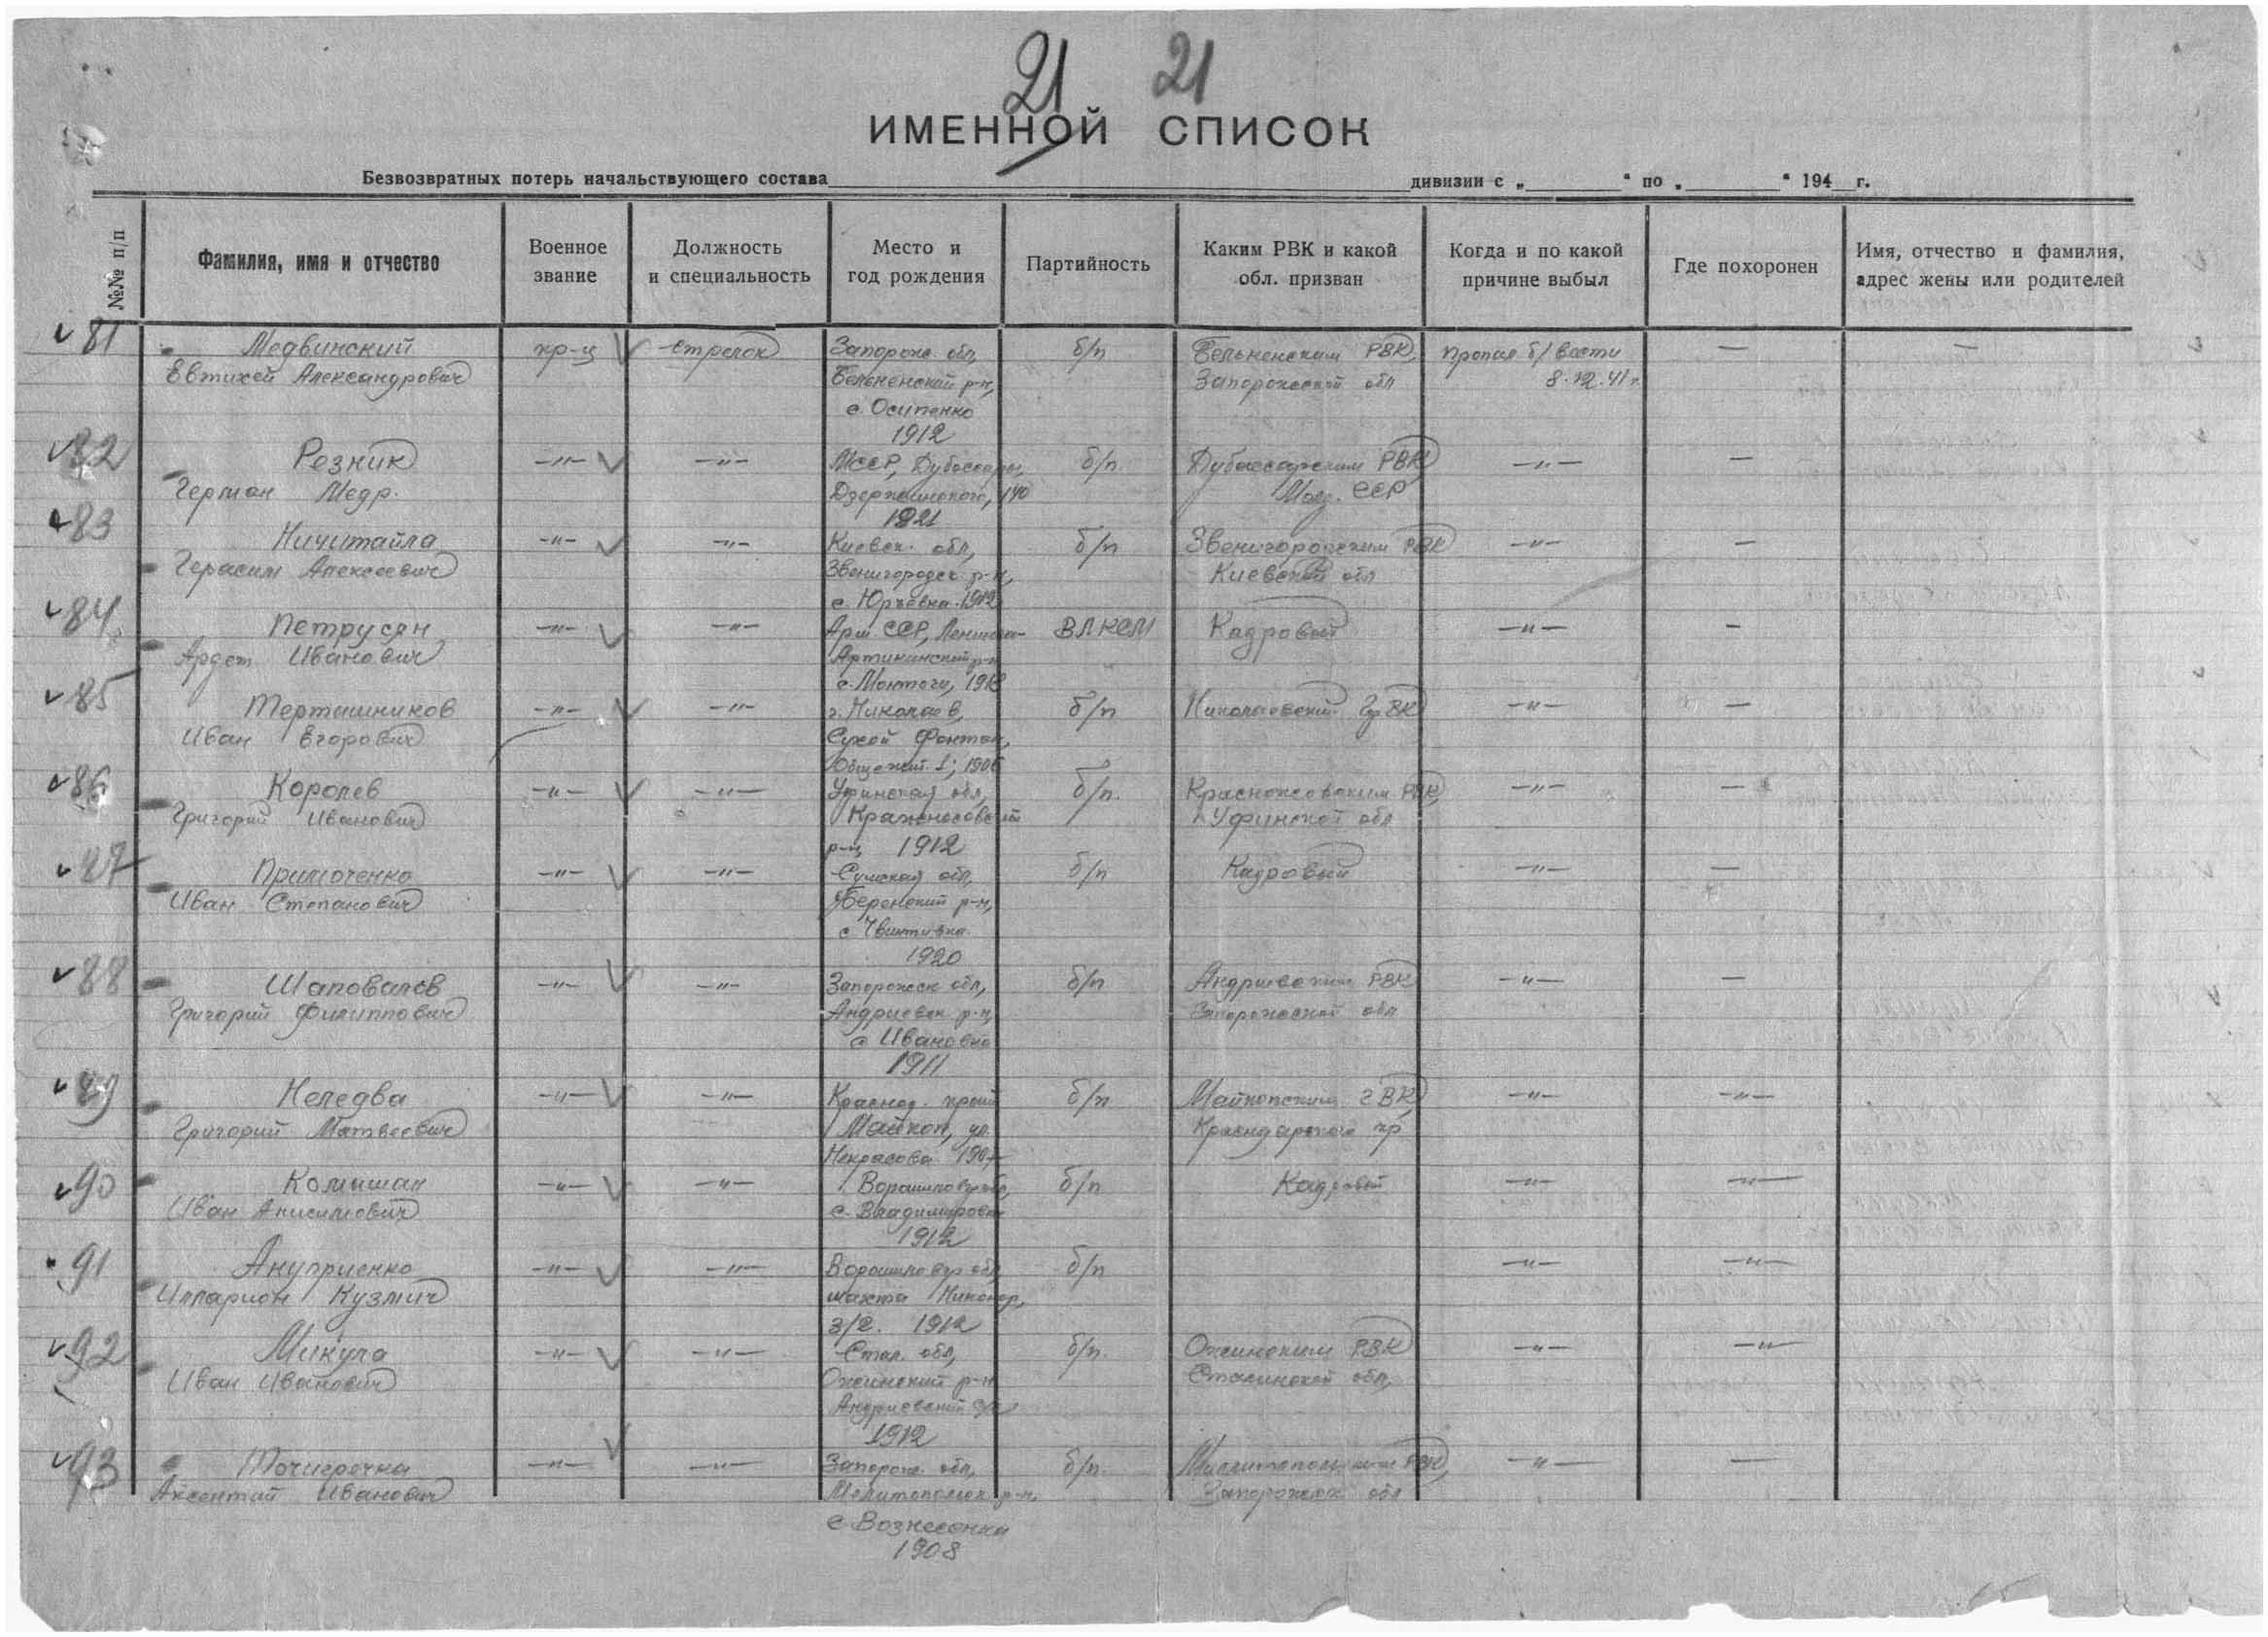 21 21
ИМЕННОЙ СПИСОК
Безвозвратных потерь начальствующего состава дивизии с „ " по „ " 194 г.
№№ п/п
Фамилия, имя и отчество
Военное звание
Должность и специальность
Место и год рождения
Партийность
Каким РВК и какой обл. призван
Когда и по какой причине выбыл
Где похоронен
Имя, отчество и фамилия, адрес жены или родителей
81 Медвинский кр-ц стрелок Запорож. обл, б/п РВК, пропал б/вести — —
Евтихей Александрович р-н, Запорожской обл 8.12.41г.
с. Осипенко
1912
82 Резник —"— —"— МССР, Дубоссары, б/п Дубоссарским РВК —"— —
Герман Медр. Дзержинского, 140 Молд. ССР
1921
83 Ничитайла —"— —"— Киевск. обл, б/п Звенигородским РВК —"— —
Герасим Алексеевич Звенигородск р-н, Киевской обл
с. Юрковка 1912
84 Петрусян —"— —"— Арм ССР, ВЛКСМ Кадровый —"— —
Иванович Артикинский р-н
с.
85 Терташников —"— —"— г. Николаев, б/п Николаевский ГорВК —"— —
Иван Егорович Сухой Фонтан,
Общежит. 1; 1906
86 Королев —"— —"— Уфинская обл, б/п. РВК, —"— —
Григорий Иванович Уфинской обл
р-н, 1912
87 Примоченко —"— —"— Сумская обл, б/п Кадровый —"— —
Иван Степанович р-н,
с.
1920
88 Шаповалов —"— —"— Запорожск обл, б/п Андриевским РВК —"— —
Григорий Филиппович Андриевск р-н, Запорожской обл
с Ивановка
1911
89 Неледва —"— —"— Краснод. край б/п Майкопским ГВК —"— —"—
Григорий Матвеевич Майкоп, ул. Краснодарского кр
Некрасова 1907
90 Комишан —"— —"— б/п Кадровый —"— —"—
Иван Анисимович с. Владимировка
1912
91 Ануприенко —"— —"— Ворошиловгр обл, б/п —"— —"—
Илларион Кузмич шахта
1912
92 Микула —"— —"— Стал. обл, б/п. РВК —"— —"—
Иван Иванович р-н Сталинской обл,
Андриевский
1912
93 —"— —"— Запорож. обл, б/п РВК, —"— —
Аксентий Иванович Мелитопольск р-н, Запорожск обл
с Вознесенка
1908